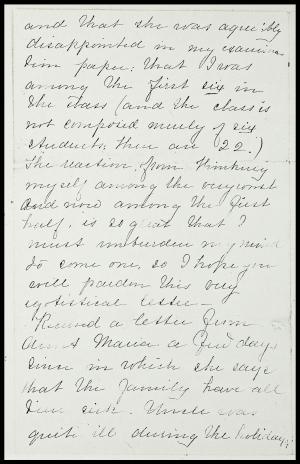 and that she was agreeably
disappointed in my examina-
tion paper; that I was
among the first six in
the class (and the class is
not composed merely of six
students; there are 22.)
The reaction from thinking
myself among the very worst
and now among the first
half, is so great that I
must unburden my mind
to some one, so I hope you
will pardon this very
egotistical letter—
Received a letter from
Aunt Maria a few days
since in which she says
that the family have all
been sick. Uncle was
quite ill during the holidays;